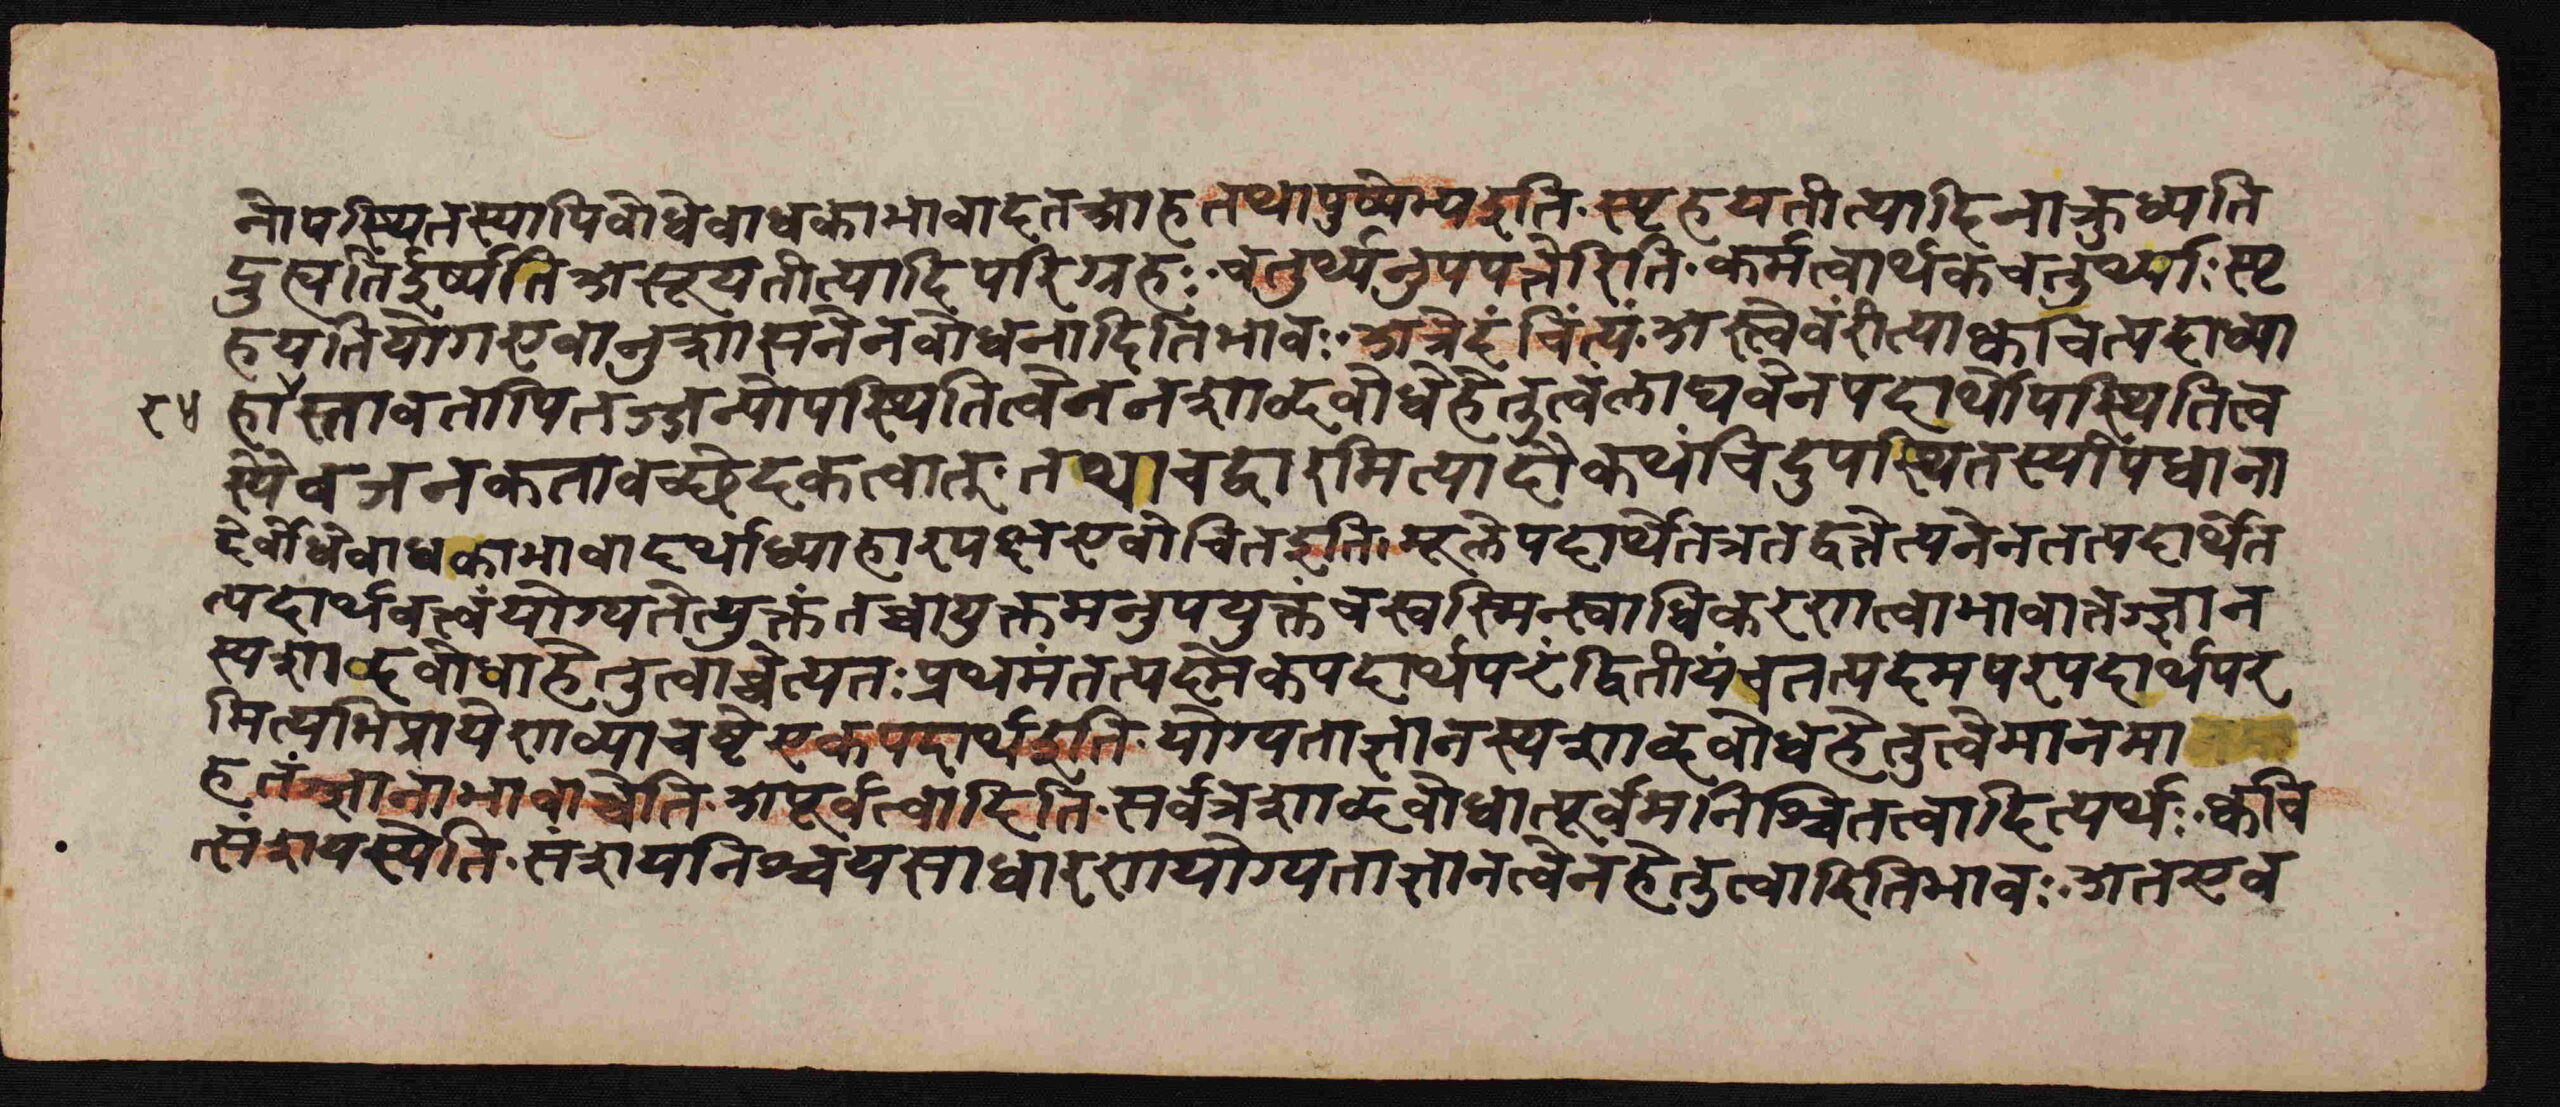 नोपस्थितस्यापिबोधेबाधकाभावादतआह तथापुष्पेभ्यइति स्पृहयतीत्यादिनाक्रुध्यति
द्रुह्यतिईर्ष्यतिअसूयतीत्यादिपरिग्रहः चतुर्थ्यनुपपत्तेरिति कर्मत्वार्थकचतुर्थ्याः स्पृ
हयतियोगएवानुशासनेनबोधनादितिभावः अत्रेदंचिंत्यं अस्त्वेवंरीत्याक्वचित्पदाध्या
हारस्तावतापितज्जन्योपस्थितित्वेननशाब्दबोधेहेतुत्वंलाघवेनपदार्थोपस्थितित्व
स्यैवजनकतावच्छेदकत्वात् तथाचद्वारमित्यादौकथंचिदुपस्थितस्यपिधाना
देर्बोधेबाधकाभावादर्थाध्याहारपक्षएवोचितइति मूलेपदार्थेतत्रतद्वत्तेत्यनेनतत्पदार्थेत
त्पदार्थवत्त्वंयोग्यतेत्युक्तंतच्चायुक्तमनुपयुक्तंचस्वस्मिन्स्वाधिकरणत्वाभावात्तज्ज्ञान
स्यशाब्दबोधाहेतुत्वाच्चेत्यतः प्रथमंतत्पदमेकपदार्थपरंद्वितीयंचतत्पदमपरपदार्थपर
मित्यभिप्रायेणव्याचष्टेएकपदार्थइति योग्यताज्ञानस्यशाब्दबोधहेतुत्वेमानमा
ह तंज्ञानाभावाच्चेति अपूर्वत्वादिति सर्वत्रशाब्दबोधात्पूर्वमनिश्चितत्वादित्यर्थः क्वचि
त्संशयस्येति संशयनिश्चयसाधारणयोग्यताज्ञानत्वेनहेतुत्वादितिभावः अतएव